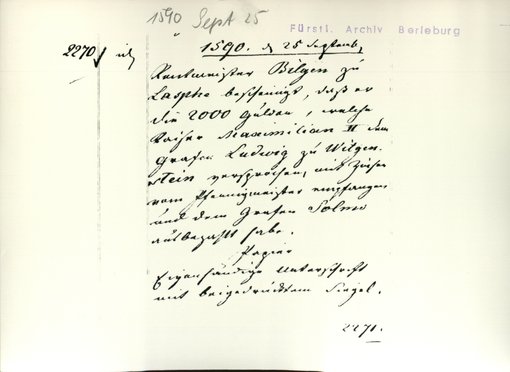 1590 Sept 25
Fürstl. Archiv Berleburg
2270
1590. d 25 Septemb.
Rentmeister Bilgen zu
Laasphe bescheinigt, daß er
die 2000 Gulden, welche
Kaiser Maximilian II dem
Grafen Ludwig zu Witgen-
stein versprochen, mit Zinsen
vom Pfennigmeister empfangen
und dem Grafen Solms
ausbezahlt habe.
Papier
Eigenhändige Unterschrift
mit beigedrücktem Siegel.
2271.